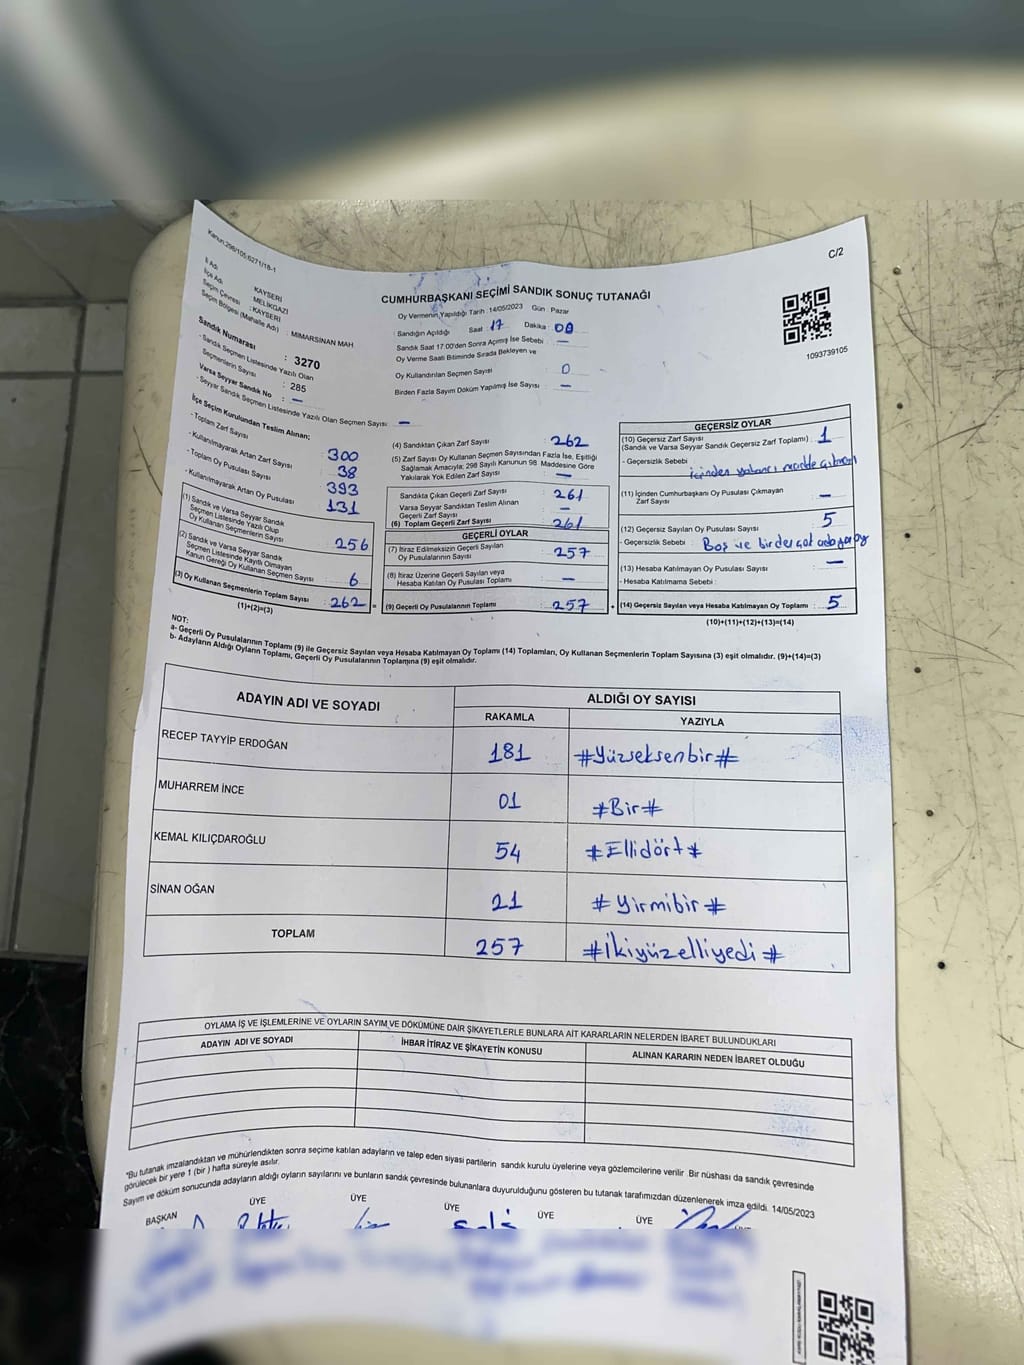 Kanun:298/105:6271/18-1
C/2
İl Adı : KAYSERİ
İlçe Adı : MELİKGAZİ
Seçim Çevresi : KAYSERİ
Seçim Bölgesi (Mahalle Adı) : MİMARSİNAN MAH
CUMHURBAŞKANI SEÇİMİ SANDIK SONUÇ TUTANAĞI
Oy Vermenin Yapıldığı Tarih :14/05/2023 Gün : Pazar
Sandığın Açıldığı Saat : 17 Dakika : 00
Sandık Saat 17:00'den Sonra Açımış İse Sebebi : —
Oy Verme Saati Bitiminde Sırada Bekleyen ve
Oy Kullandırılan Seçmen Sayısı : 0
Birden Fazla Sayım Döküm Yapılmış İse Sayısı : —
1093739105
Sandık Numarası : 3270
- Sandık Seçmen Listesinde Yazılı Olan
Seçmenlerin Sayısı : 285
Varsa Seyyar Sandık No : —
- Seyyar Sandık Seçmen Listesinde Yazılı Olan Seçmen Sayısı : —
İlçe Seçim Kurulundan Teslim Alınan;
- Toplam Zarf Sayısı : 300
- Kullanılmayarak Artan Zarf Sayısı : 38
- Toplam Oy Pusulası Sayısı : 393
- Kullanılmayarak Artan Oy Pusulası : 131
(1) Sandık ve Varsa Seyyar Sandık
Seçmen Listesinde Yazılı Olup
Oy Kullanan Seçmenlerin Sayısı : 256
(2) Sandık ve Varsa Seyyar Sandık
Seçmen Listesinde Kayıtlı Olmayan
Kanun Gereği Oy Kullanan Seçmen Sayısı : 6
(3) Oy Kullanan Seçmenlerin Toplam Sayısı : 262 =
(1)+(2)=(3)
(4) Sandıktan Çıkan Zarf Sayısı : 262
(5) Zarf Sayısı Oy Kullanan Seçmen Sayısından Fazla İse, Eşitliği
Sağlamak Amacıyla; 298 Sayılı Kanunun 98 Maddesine Göre
Yakılarak Yok Edilen Zarf Sayısı : —
Sandıkta Çıkan Geçerli Zarf Sayısı : 261
Varsa Seyyar Sandıktan Teslim Alınan
Geçerli Zarf Sayısı : —
(6) Toplam Geçerli Zarf Sayısı : 261
GEÇERLİ OYLAR
(7) İtiraz Edilmeksizin Geçerli Sayılan
Oy Pusulalarının Sayısı : 257
(8) İtiraz Üzerine Geçerli Sayılan veya
Hesaba Katılan Oy Pusulası Toplamı : —
(9) Geçerli Oy Pusulalarının Toplamı : 257 +
GEÇERSİZ OYLAR
(10) Geçersiz Zarf Sayısı
(Sandık ve Varsa Seyyar Sandık Geçersiz Zarf Toplamı) : 1
- Geçersizlik Sebebi : içinden yabancı
(11) İçinden Cumhurbaşkanı Oy Pusulası Çıkmayan
Zarf Sayısı : —
(12) Geçersiz Sayılan Oy Pusulası Sayısı : 5
- Geçersizlik Sebebi : Boş ve birden çok adaya oy
(13) Hesaba Katılmayan Oy Pusulası Sayısı : —
- Hesaba Katılmama Sebebi :
(14) Geçersiz Sayılan veya Hesaba Katılmayan Oy Toplamı : 5
(10)+(11)+(12)+(13)=(14)
NOT:
a- Geçerli Oy Pusulalarının Toplamı (9) ile Geçersiz Sayılan veya Hesaba Katılmayan Oy Toplamı (14) Toplamları, Oy Kullanan Seçmenlerin Toplam Sayısına (3) eşit olmalıdır. (9)+(14)=(3)
b- Adayların Aldığı Oyların Toplamı, Geçerli Oy Pusulalarının Toplamına (9) eşit olmalıdır.
ADAYIN ADI VE SOYADI
ALDIĞI OY SAYISI
RAKAMLA YAZIYLA
RECEP TAYYİP ERDOĞAN 181 #Yüzseksenbir#
MUHARREM İNCE 01 #Bir#
KEMAL KILIÇDAROĞLU 54 #Ellidört#
SİNAN OĞAN 21 #Yirmibir#
TOPLAM 257 #İkiyüzelliyedi#
OYLAMA İŞ VE İŞLEMLERİNE VE OYLARIN SAYIM VE DÖKÜMÜNE DAİR ŞİKAYETLERLE BUNLARA AİT KARARLARIN NELERDEN İBARET BULUNDUKLARI
ADAYIN ADI VE SOYADI İHBAR İTİRAZ VE ŞİKAYETİN KONUSU ALINAN KARARIN NEDEN İBARET OLDUĞU
"Bu tutanak imzalandıktan ve mühürlendikten sonra seçime katılan adayların ve talep eden siyasi partilerin sandık kurulu üyelerine veya gözlemcilerine verilir. Bir nüshası da sandık çevresinde
görülecek bir yere 1 (bir ) hafta süreyle asılır.
Sayım ve döküm sonucunda adayların aldığı oyların sayılarını ve bunların sandık çevresinde bulunanlara duyurulduğunu gösteren bu tutanak tarafımızdan düzenlenerek imza edildi. 14/05/2023
BAŞKAN ÜYE ÜYE ÜYE ÜYE ÜYE ÜYE